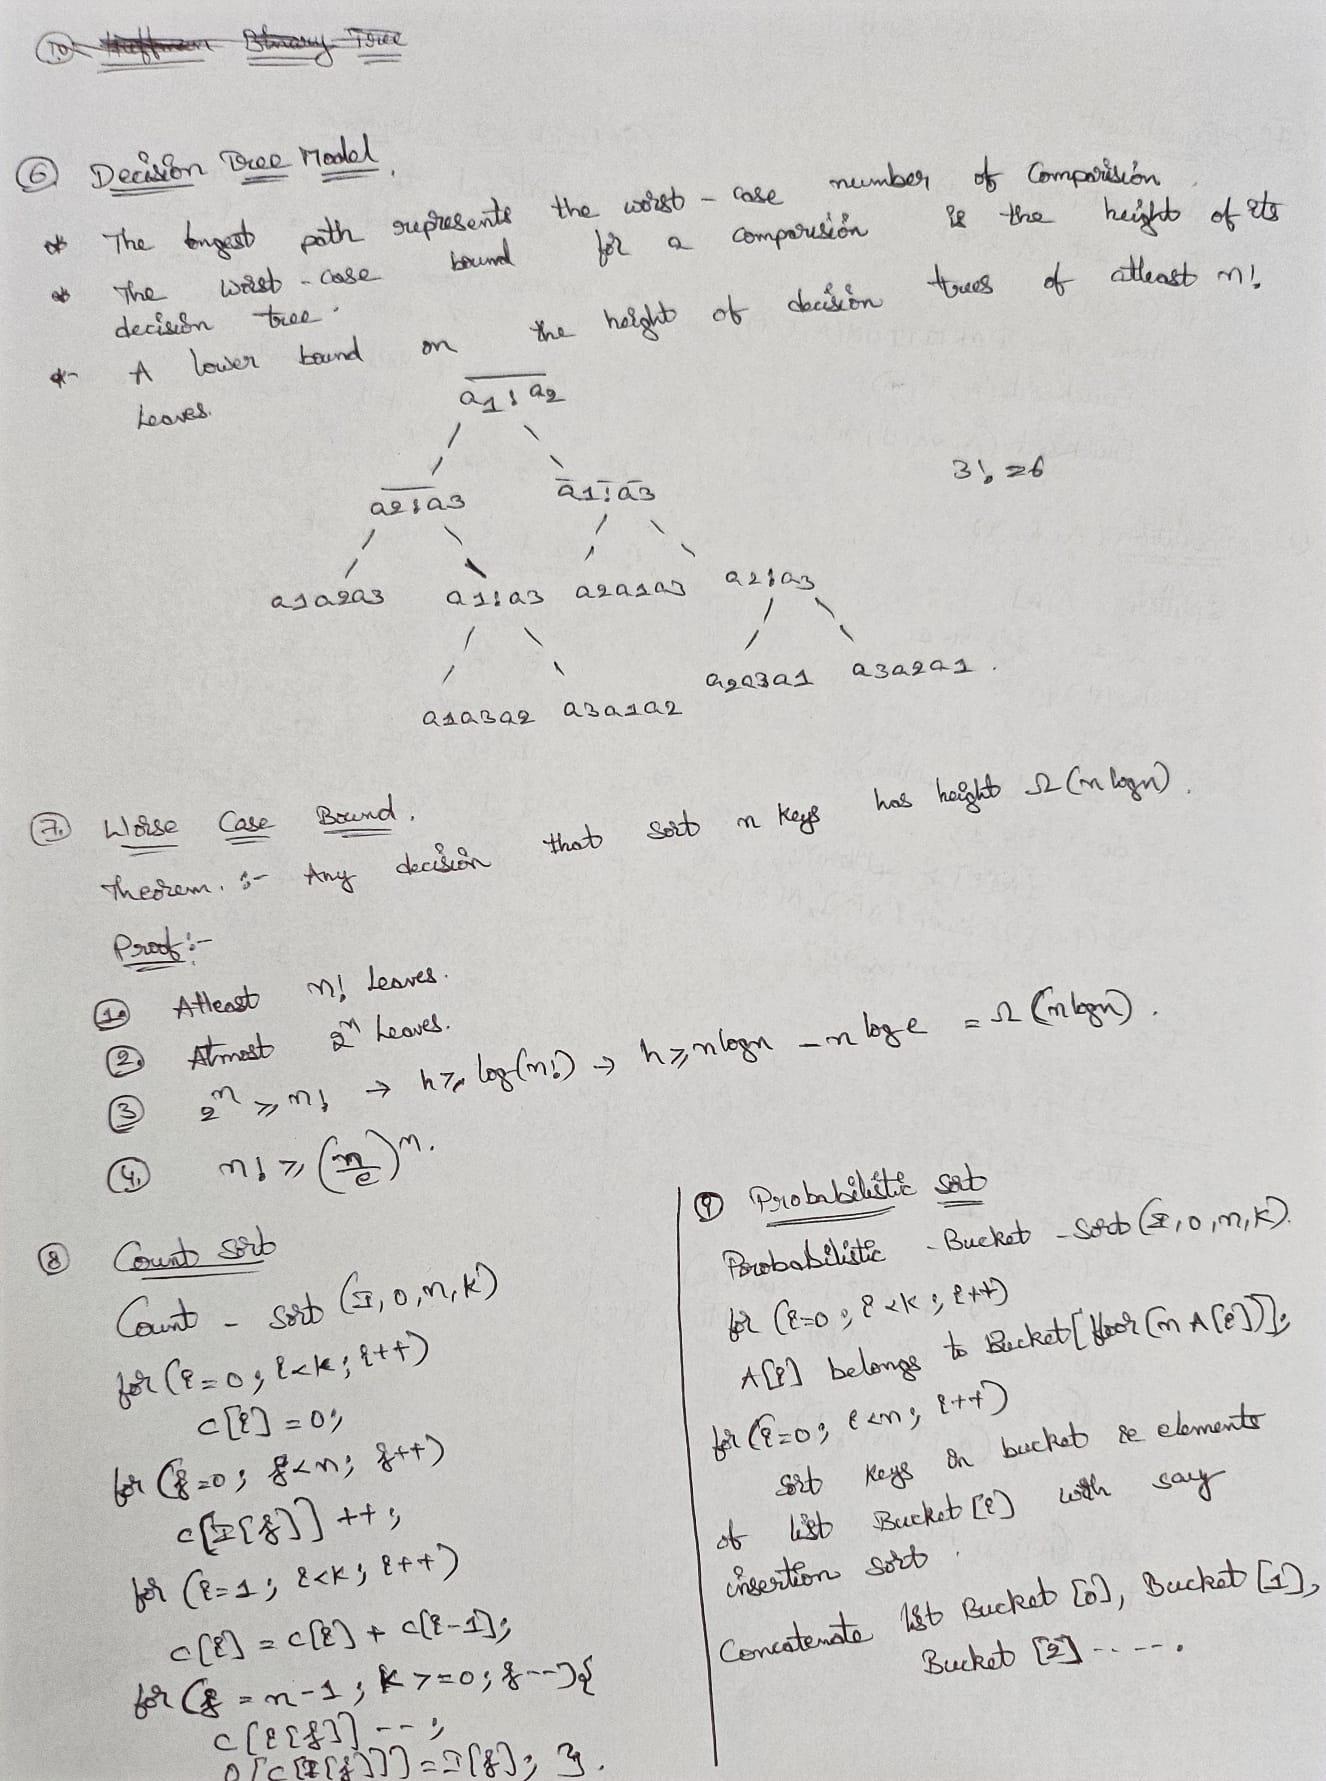 10. Huffman Binary Tree
6 Decision Tree Model.
* The longest path represents the worst - case number of Comparision.
* The worst - case bound for a comparision is the height of its
decision tree.
* A lower bound on the height of decision trees of atleast n!
Leaves.
a1:a2
a2:a3 a1:a3
3! = 6
a1a2a3 a1:a3 a2a1a3 a2:a3
a1a3a2 a3a1a2 a2a3a1 a3a2a1.
7. Worse Case Bound.
Theorem. :- Any decision that sort n keys has height Ω(n logn).
Proof:-
1. Atleast n! Leaves.
2. Atmost 2^n Leaves.
3 2^n ≥ n! → h ≥ log(n!) → h ≥ nlogn - n log e = Ω(nlogn).
4. n! ≥ (n/e)^n.
8 Count Sort
Count - sort (I, O, n, k)
for (i=0; i<k; i++)
c[i] = 0;
for (j=0; j<n; j++)
c[I[j]]++;
for (i=1; i<k; i++)
c[i] = c[i] + c[i-1];
for (j = n-1; k>=0; j--){
c[I[j]]--;
O[c[I[j]]]=I[j]; }.
9 Probabilistic sort
Probabilistic - Bucket - Sort (I, O, n, k).
for (i=0; i<k; i++)
A[i] belongs to Bucket[floor(n A[i])];
for (i=0; i<n; i++)
sort keys in bucket ie elements
of list Bucket [i] with say
insertion sort.
Concatenate list Bucket [0], Bucket [1],
Bucket [2] .....